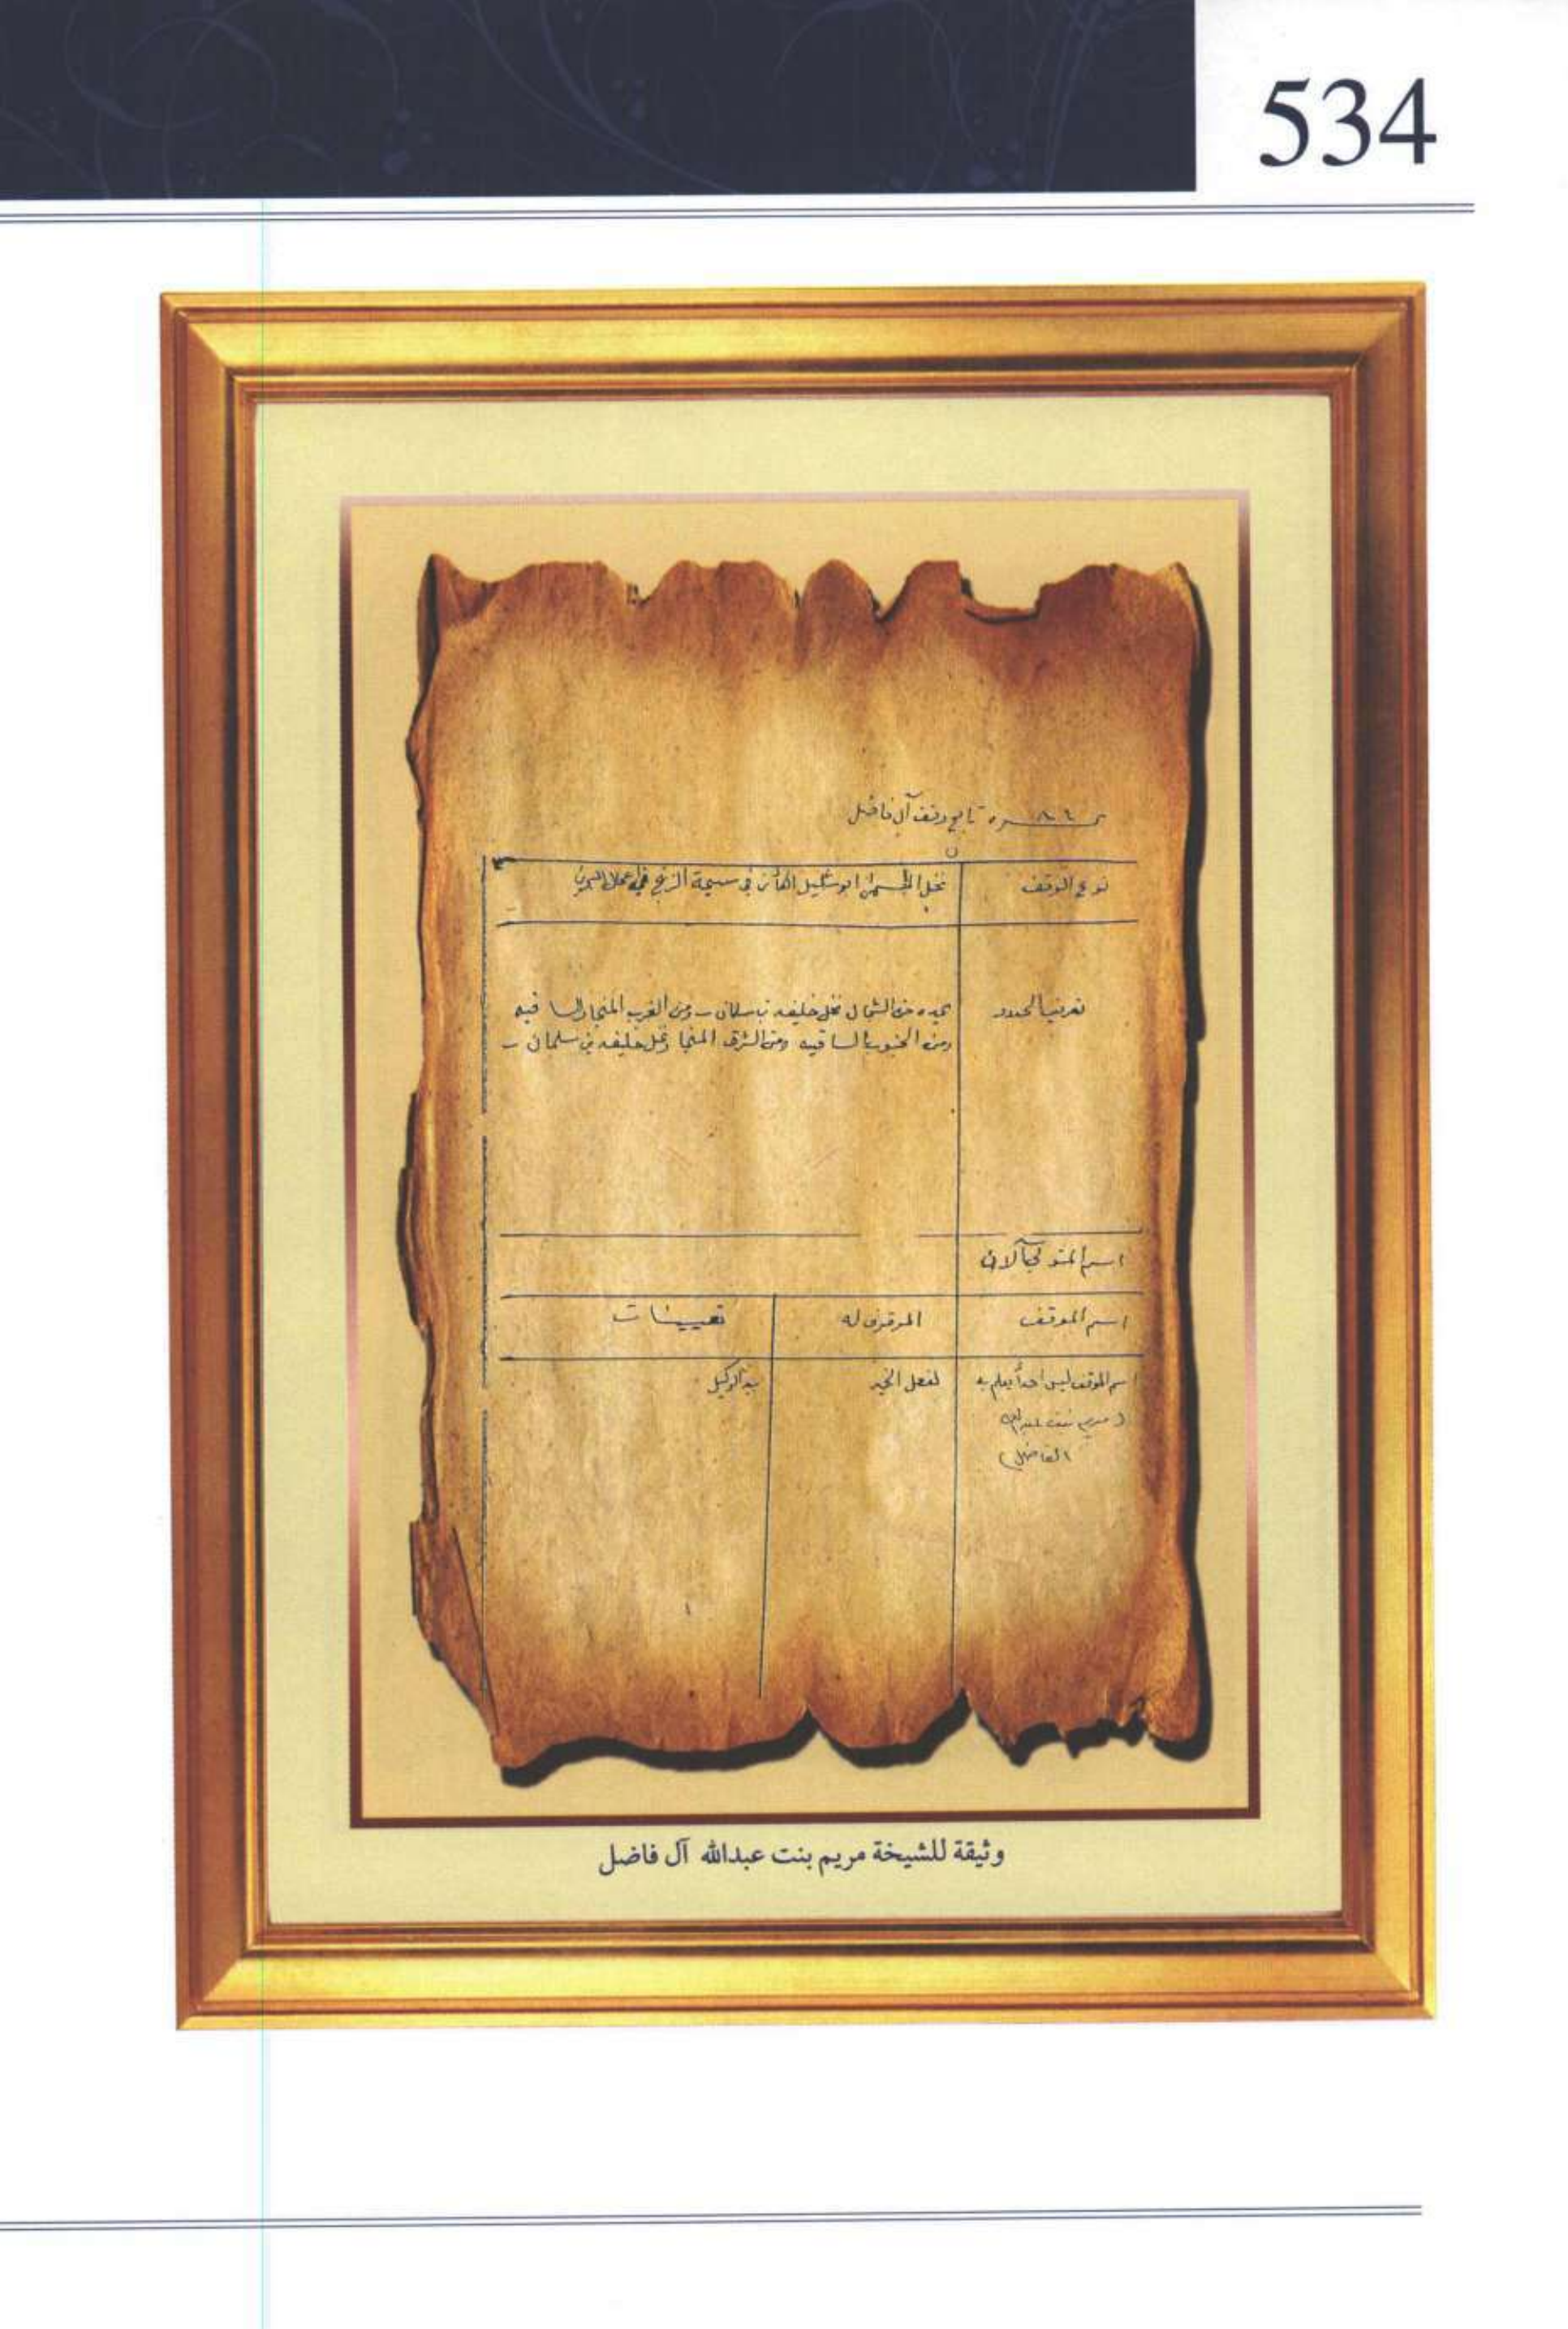 534
تابع وقف آل فاضل
نوع الوقف
نخل المسمى ابو شليل الكائن في سيحة الزنج من اعمال البحرين
تعريف الحدود
يحده من الشمال نخل خليفه بن سلمان ومن الغرب المنجا والساقيه
ومن الجنوب الساقيه ومن الشرق المنجا ونخل خليفه بن سلمان
اسم المتولي الآن
اسم الموقف
الموقوف له
تعيينات
اسم الموقف ليس احداً يعلم به
(مريم بنت عبدالله
الفاضل)
لفعل الخير
بيد الوكيل
وثيقة للشيخة مريم بنت عبدالله آل فاضل